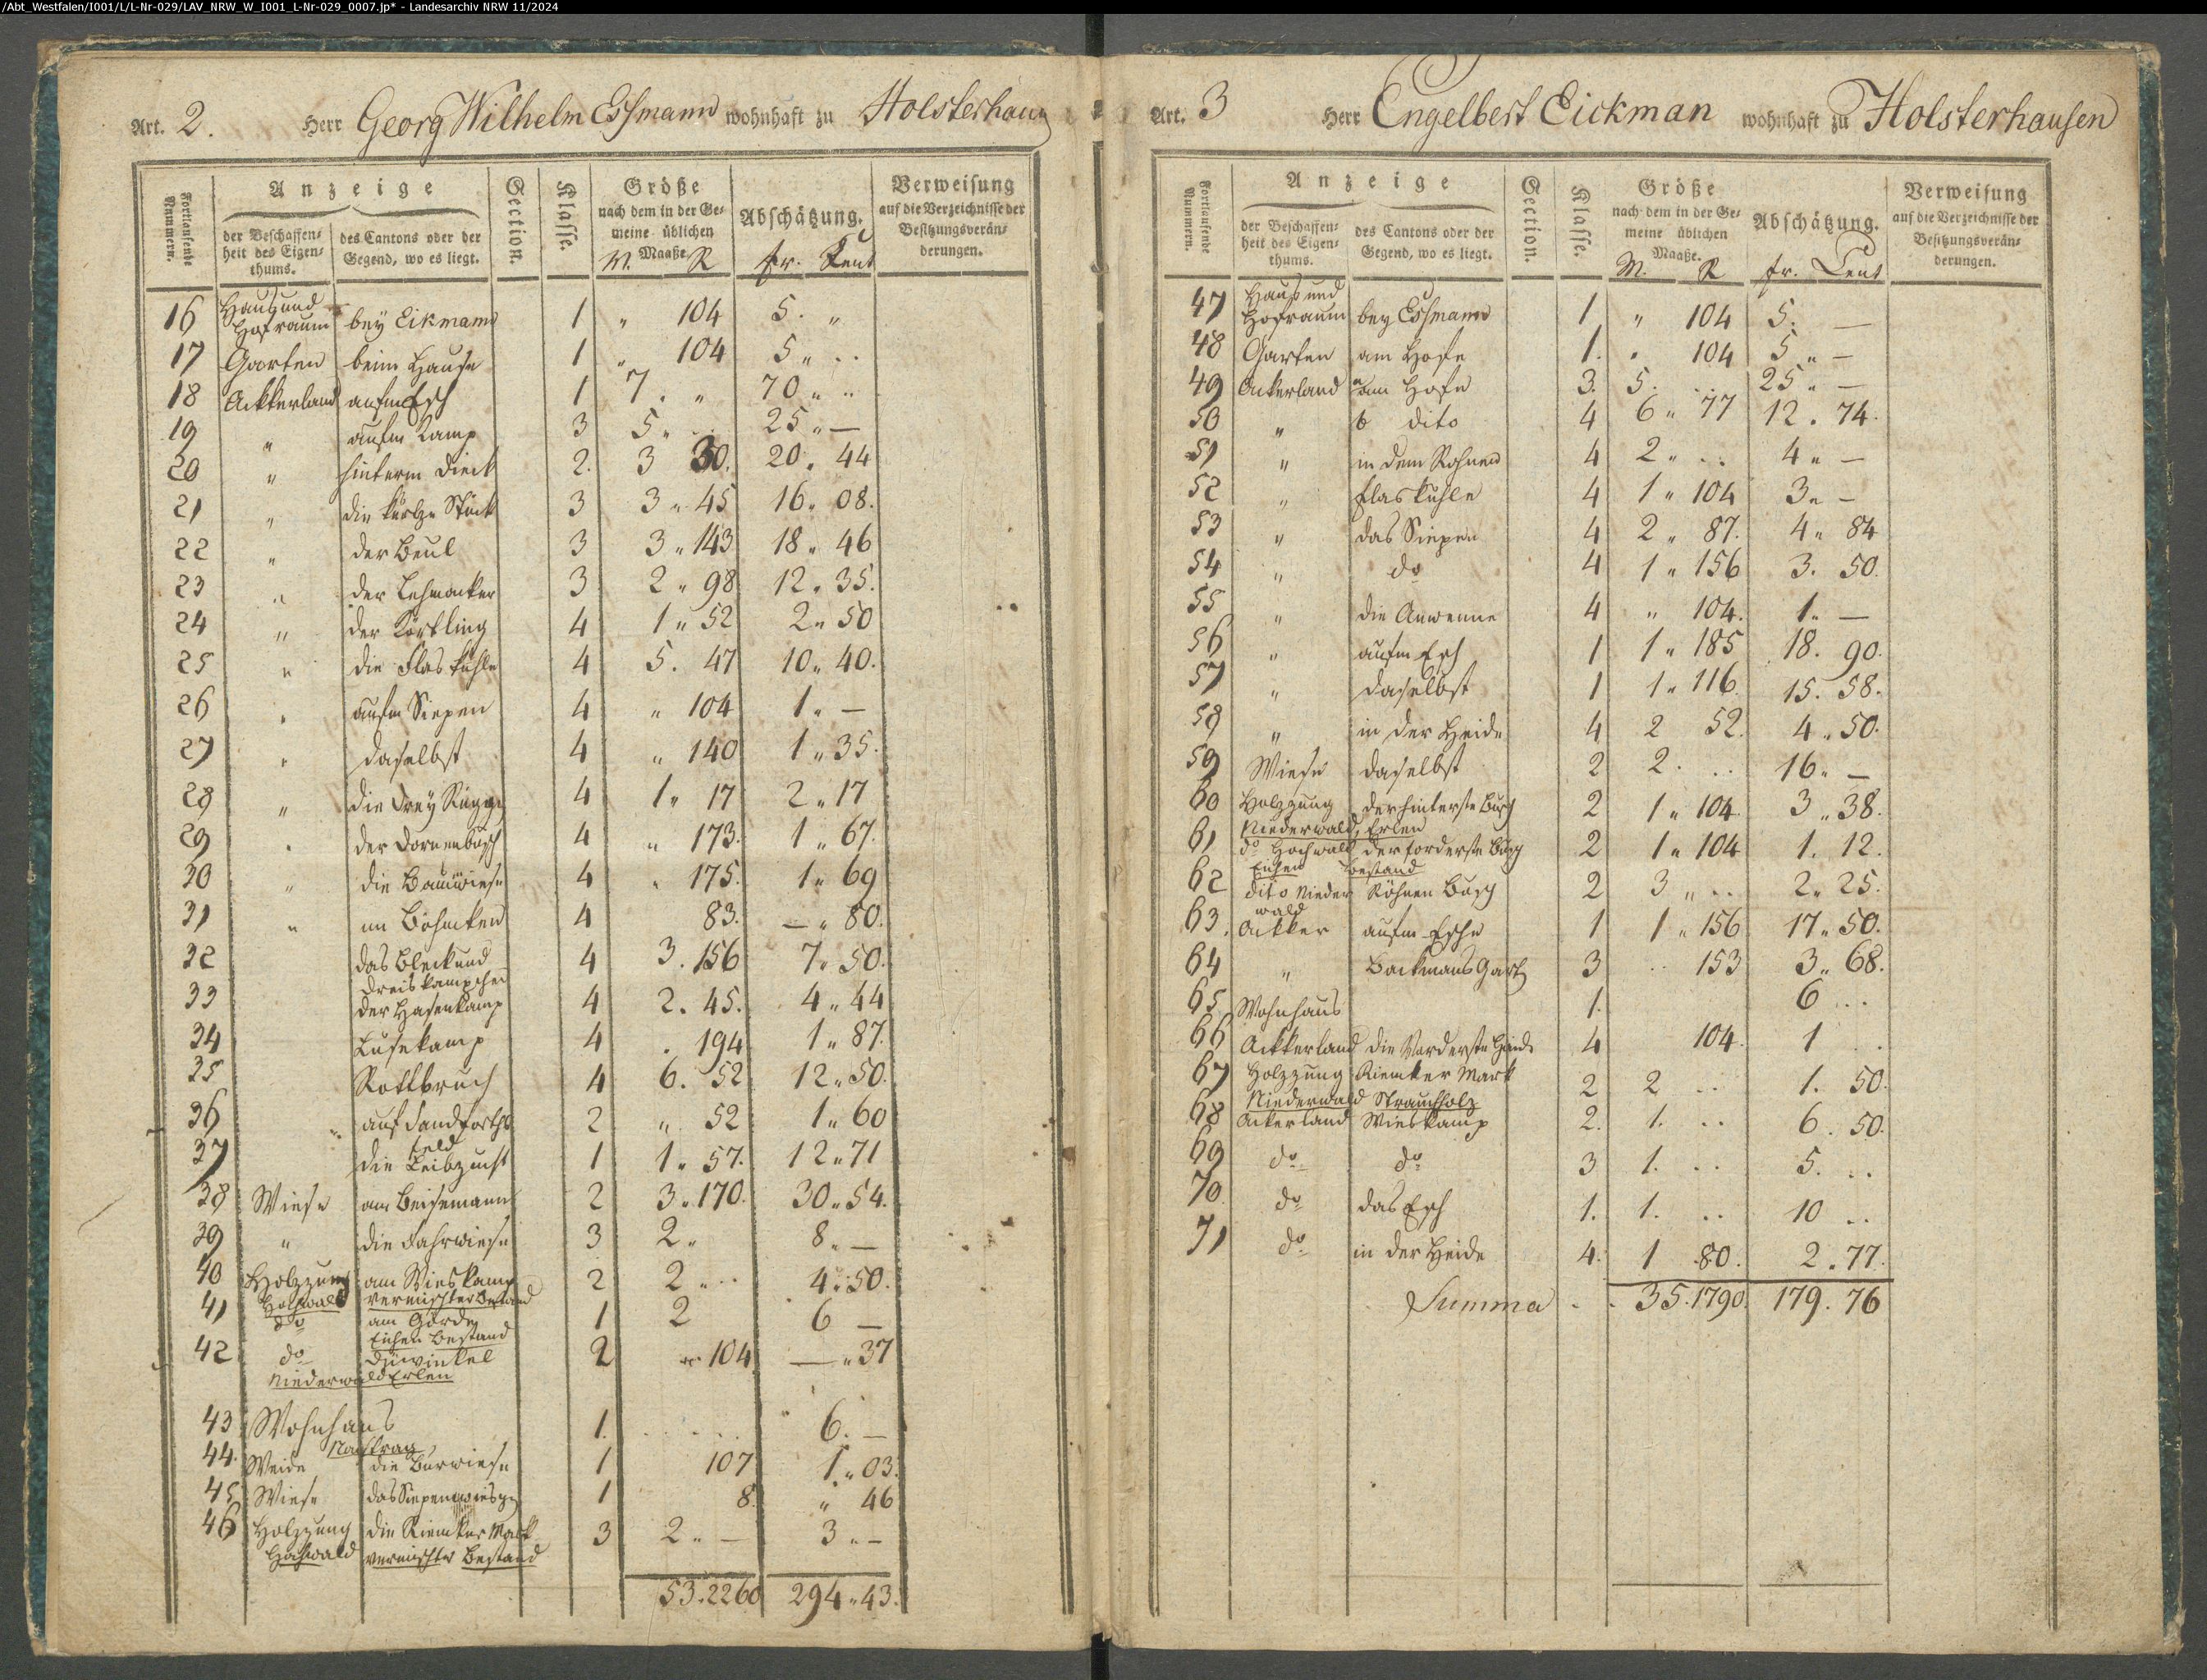 /Abt_Westfalen/I001/L/L-Nr-029/LAV_NRW_W_I001_L-Nr-029_0007.jp* - Landesarchiv NRW 11/2024
Art. 2. Herr Georg Wilhelm Essmann wohnhaft zu Holsterhaus
Fortlaufende Nummern.
Anzeige
der Beschaffenheit des Eigenthums.
des Cantons oder der Gegend, wo es liegt.
Section.
Klasse.
Größe
nach dem in der Gemeine üblichen Maaße.
M. R
Abschätzung.
fr. Cent
Verweisung
auf die Verzeichnisse der Besitzungsveränderungen.
16 Haus und Hofraum bey Eikmann 1 " 104 5. "
17 Garten beim Hause 1 " 104 5 " ..
18 Ackkerland aufm Esch 1 7 . " 70 " ..
19 " aufm Kamp 3 5 " .. 25 " —
20 " hinterm Dieck 2. 3 30. 20. 44
21 " die kurtze Stück 3 3 " 45 16. 08.
22 " der Beul 3 3 " 143 18 " 46
23 " der Lehmacker 3 2 " 98 12. 35.
24 " der Körtling 4 1 " 52 2 " 50
25 " die Flaskuhle 4 5. 47 10 " 40.
26 " aufm Siepen 4 " 104 1 " —
27 " daselbst 4 " 140 1 " 35.
28 " die drey Rügge 4 1 " 17 2 " 17
29 " der Dornenbusch 4 " 173. 1 " 67.
30 " die Baumwiese 4 " 175. 1 " 69
31 " im Böhmken 4 83. — " 80.
32 das Bleck und Dreiskämpchen 4 3. 156 7 " 50.
33 der Hasenkamp 4 2. 45. 4 " 44
34 Lusekamp 4 . 194 1 " 87.
35 Rottbruch 4 6. 52 12 " 50.
36 auf Sandforths feld 2 " 52 1 " 60
37 die Leibzucht 1 1 " 57. 12 " 71
38 Wiese am Beisemann 2 3 " 170. 30 " 54.
39 " die Fahrwiese 3 2 " 8 " —
40 Holzzung am Wieskamp 2 2 " .. 4 " 50.
Hochwald vermischter Bestand
41 do am Garden 1 2 6 —
Eichen Bestand
42 do Düwinkel 2 " 104 — " 37
Niederwald Erlen
43 Wohnhaus 1. .. 6. —
Nachtrag
44. Weide die Burwiese 1 107 1 " 03.
45 Wiese das Siepenwiesgen 1 8. " 46
46 Holzzung die Riemker Mark 3 2 " — 3 " —
Hochwald vermischter Bestand
53. 2260 294 " 43.
Art. 3 Herr Engelbert Eickman wohnhaft zu Holsterhausen
Fortlaufende Nummern.
Anzeige
der Beschaffenheit des Eigenthums.
des Cantons oder der Gegend, wo es liegt.
Section.
Klasse.
Größe
nach dem in der Gemeine üblichen Maaße.
M. R
Abschätzung.
fr. Cent
Verweisung
auf die Verzeichnisse der Besitzungsveränderungen.
47 Haus und Hofraum bey Essmann 1 " 104 5. —
48 Garten am Hofe 1. " 104 5 " —
49 Ackerland am Hofe 3. 5. .. 25 " —
50 " dito 4 6 " 77 12. 74.
51 " in dem Rohnen 4 2 " .. 4 " —
52 " Flaskuhle 4 1 " 104 3 " —
53 " das Siepen 4 2 " 87. 4 " 84
54 " do 4 1 " 156 3. 50.
55 " die Anwenne 4 " 104. 1. —
56 " aufm Esch 1 1 " 185 18. 90.
57 " daselbst 1 1 " 116. 15. 58.
58 " in der Heide 4 2 52. 4 " 50.
59 Wiese daselbst 2 2. .. 16 " —
60 Holzzung der hinterste Busch 2 1 " 104 3 " 38.
Niederwald, Erlen
61 do Hochwald der forderste Busch 2 1 " 104 1. 12.
Eichen bestand
62 dito Niederwald Röhnen Busch 2 3 " .. 2 " 25.
63. Ackker aufm Esche 1 1 " 156 17 " 50.
64 " Backmans Gart 3 .. 153 3 " 68.
65 Wohnhaus 1. 6 ..
66 Ackkerland die Vorderste Heide 4 104. 1 ..
67 Holzzung Riemker Mark 2 2 .. 1. 50.
Niederwald Strauchholz
68 Ackerland Wieskamp 2. 1. .. 6. 50.
69 do do 3 1. .. 5. ..
70 do das Esch 1. 1. .. 10 ..
71 do in der Heide 4. 1 80. 2. 77.
Summa 35. 1790. 179. 76